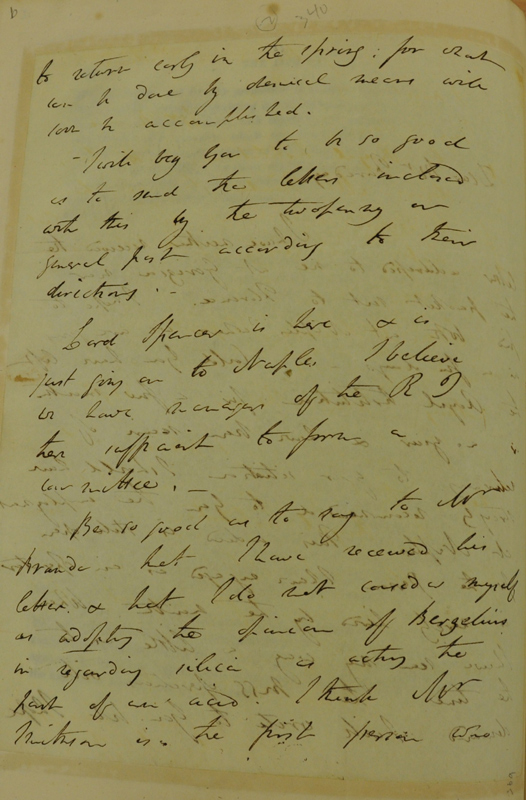 to return early in the spring; for what
can be done by chemical means will
soon be accomplished.
- I will beg you to be so good
as to send the letters inclosed
with this by the twopenny or
general post according to their
directions. -
Lord Spencer is here & is
just going on to Naples I believe
we have managers of the R I
here sufficient to form a
committee. -
Be so good as to say to Mr
Brande that I have received his
letter & that I do not consider myself
as adopting the opinion of Berzelius
in regarding silica as acting the
part of an acid. I think Mr
Smithson is the first person who